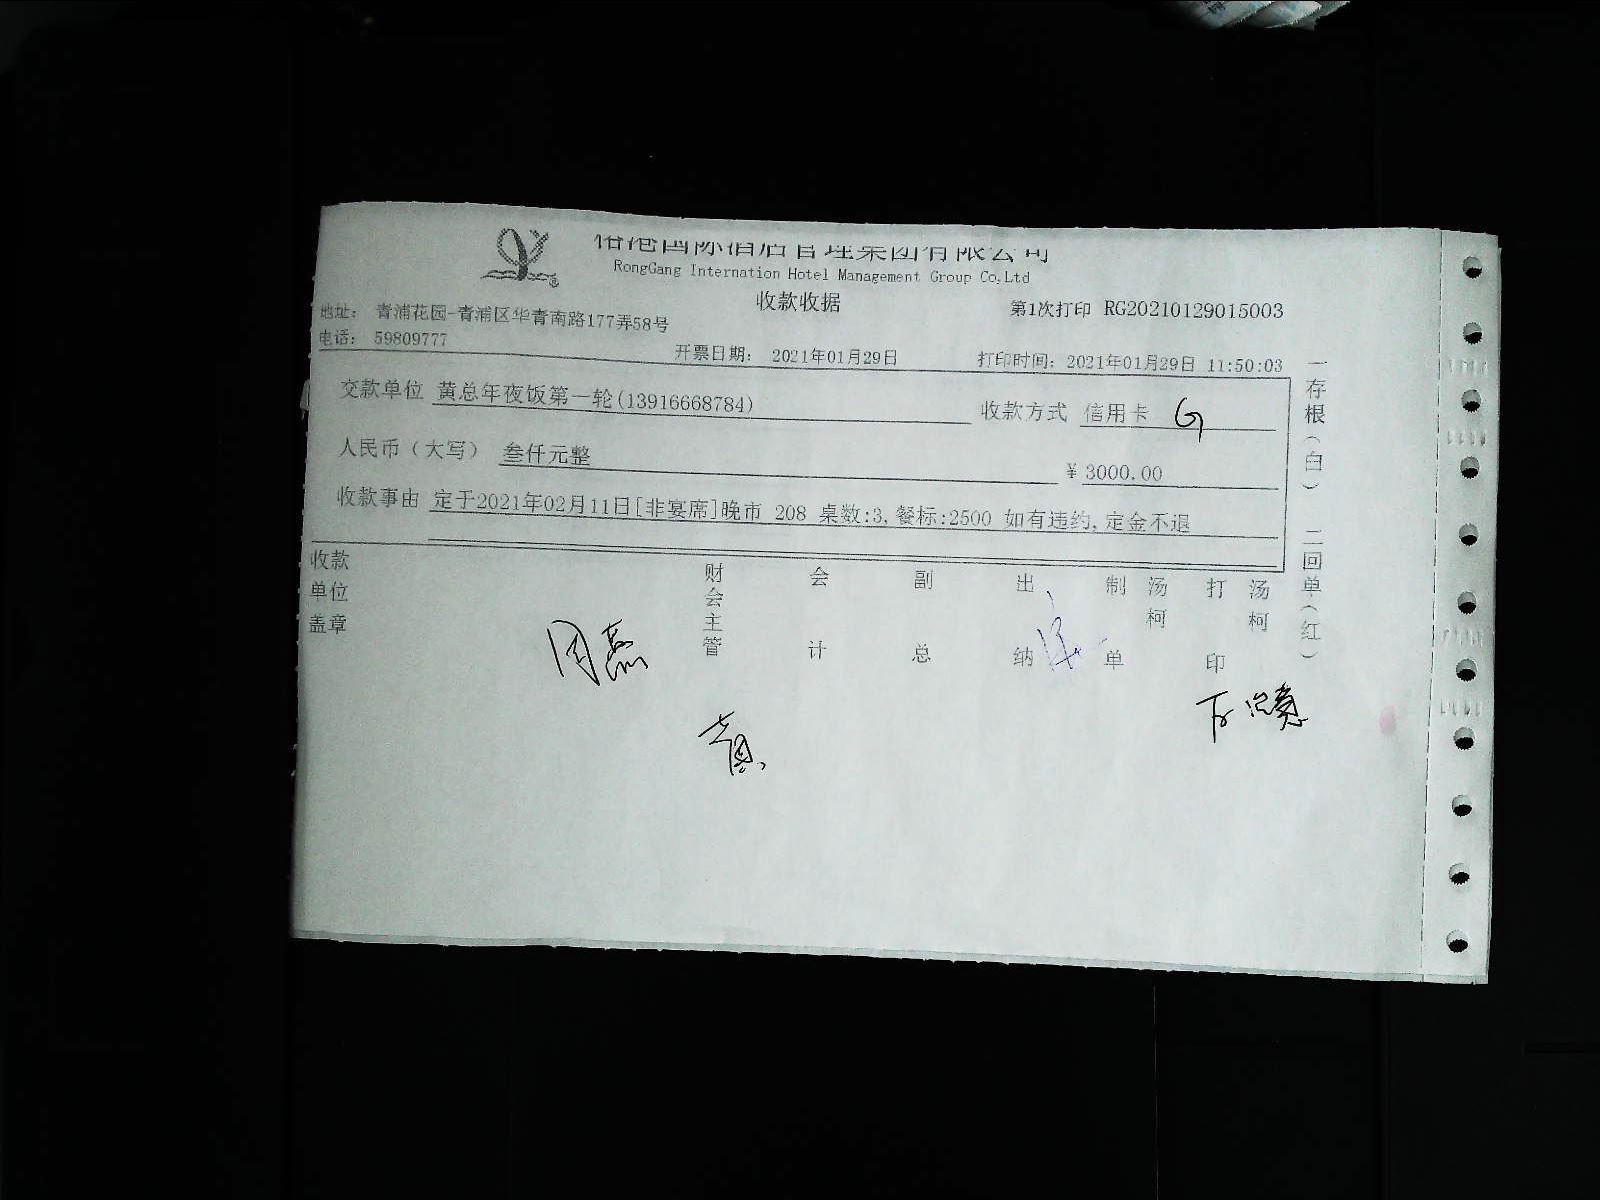 港国际酒店管理集团有限公司
RongGang Internation Hotel Management Group Co,Ltd
收款收据
第1次打印 RG20210129015003
地址： 青浦花园-青浦区华青南路177弄58号
电话： 59809777
开票日期： 2021年01月29日
打印时间：2021年01月29日 11:50:03
交款单位 黄总年夜饭第一轮(13916668784)
收款方式 信用卡 G
人民币（大写） 叁仟元整
￥3000.00
收款事由 定于2021年02月11日[非宴席]晚市 208 桌数:3,餐标:2500 如有违约,定金不退
收款单位盖章
财会主管
会计
副总
出纳
制单 汤柯
打印 汤柯
周磊
一存根（白） 二回单（红）